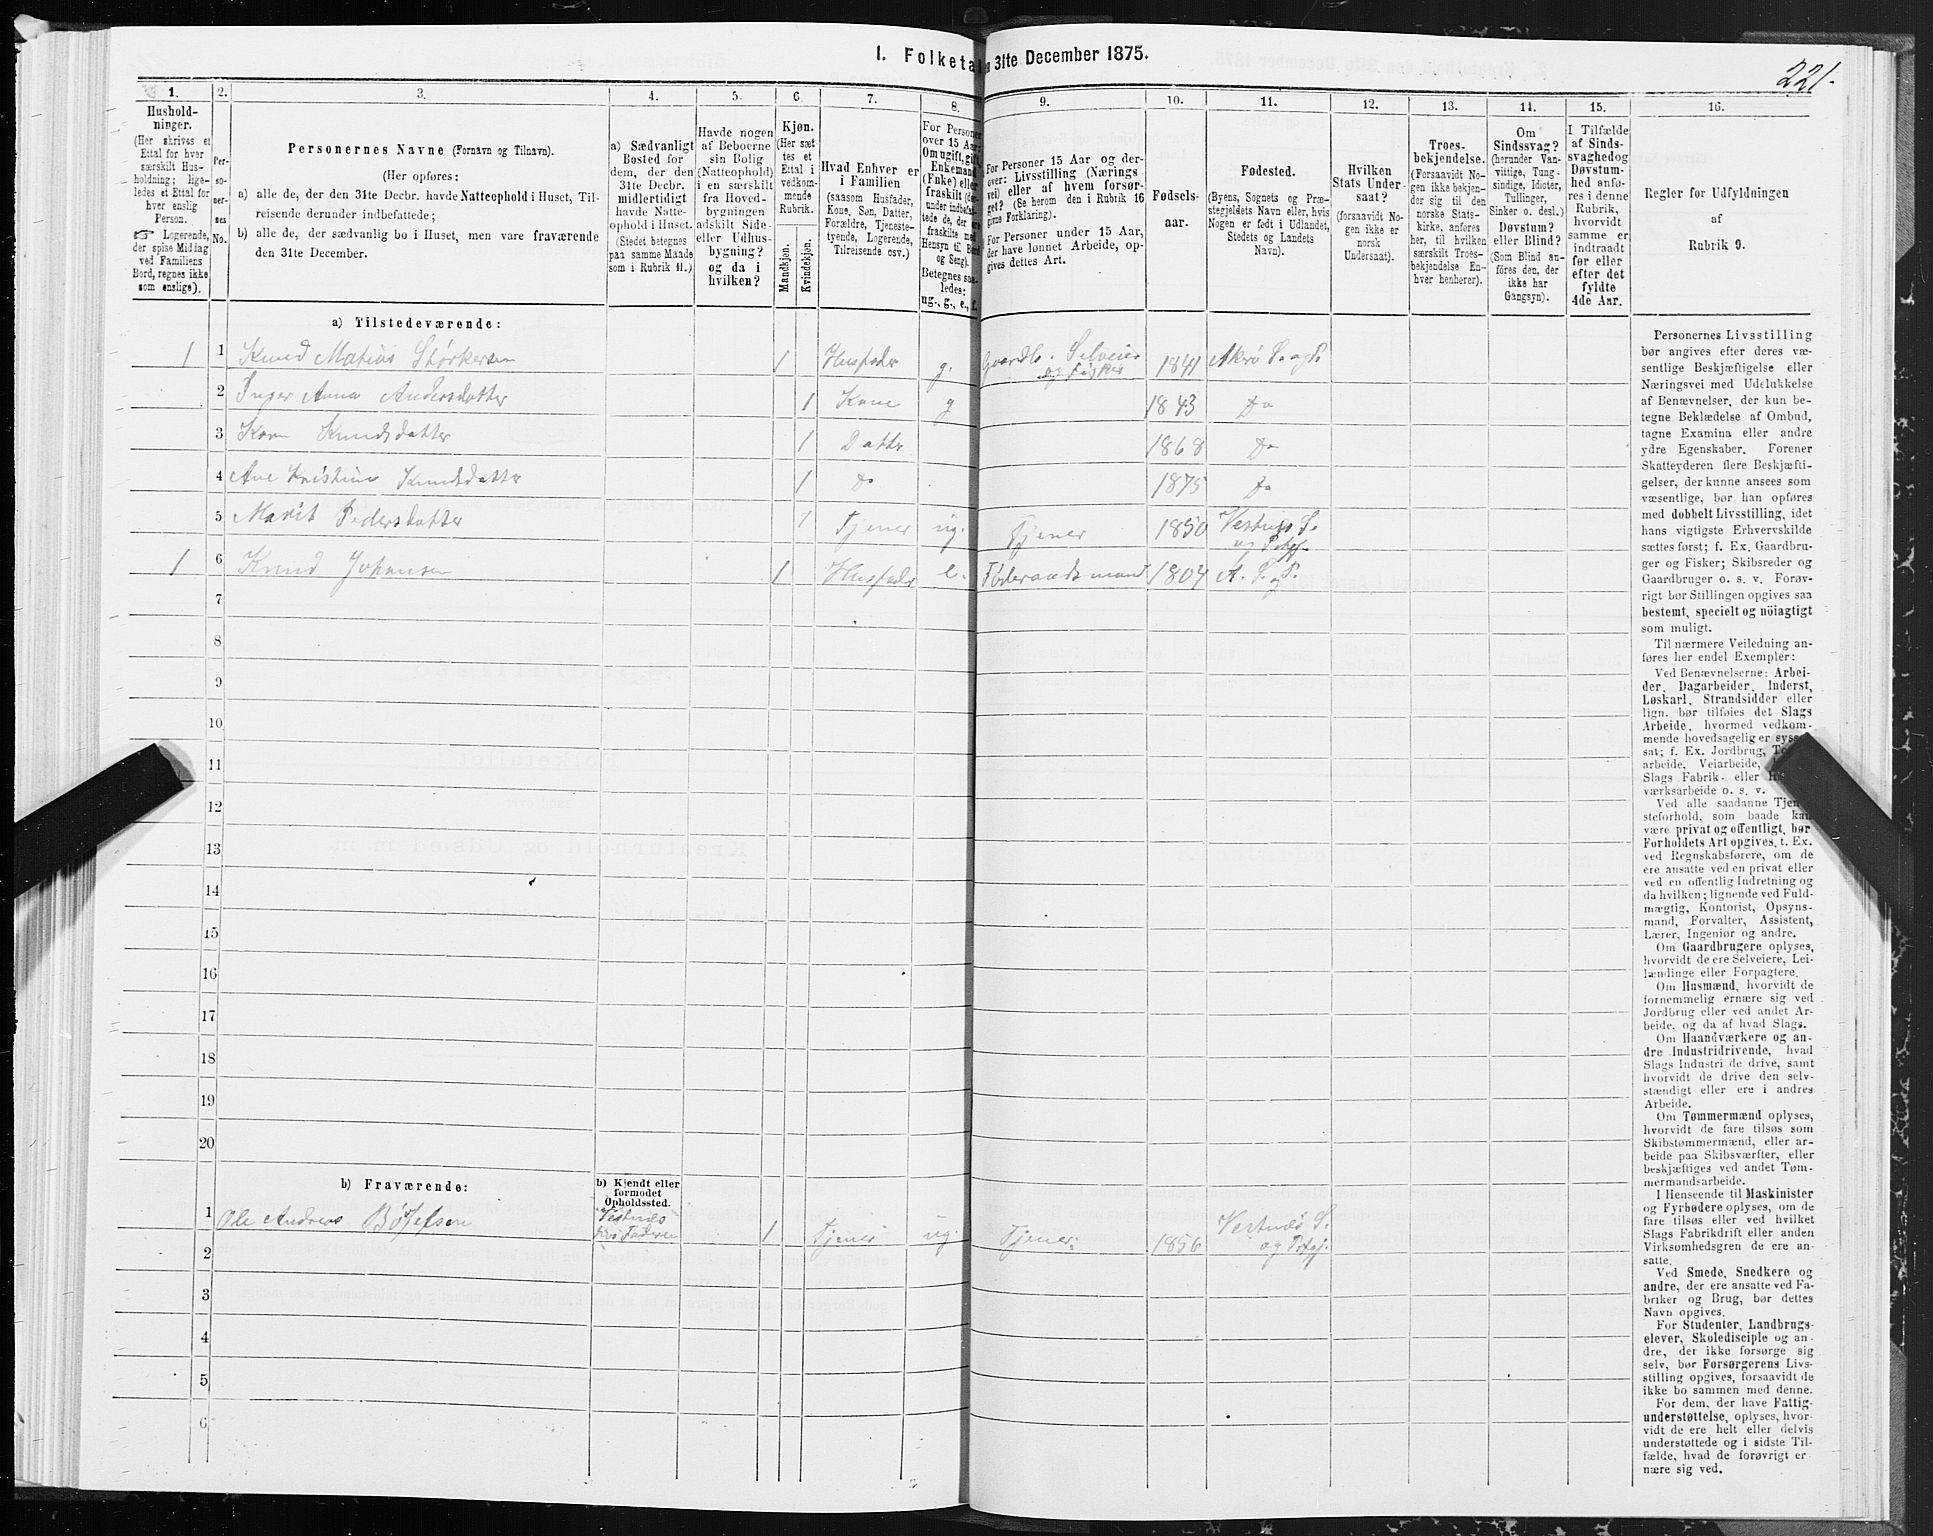 1. Folketal
en 31te December 1875.
221.
1.
2.
3.
4.
5.
6
7.
8.
9.
10.
11.
12.
13.
14.
15.
16.
Hushold-
ninger.
(Her skrives et
Ettal for hver
særskilt Hus-
holdning; lige-
ledes et Ettal for
hver enslig
Person.
☞ Logerende,
der spise Middag
ved Familiens
Bord, regnes ikke
som enslige).
Per-
so-
ner-
nes
No.
Personernes Navne (Fornavn og Tilnavn).
(Her opføres:
a) alle de, der den 31te Decbr. havde Natteophold i Huset, Til-
reisende derunder indbefattede;
b) alle de, der sædvanlig bo i Huset, men vare fraværende
den 31te December.
a) Sædvanligt
Bosted for
dem, der den
31te Decbr.
midlertidigt
havde Natte-
ophold i Huset.
(Stedet betegnes
paa samme Maade
som i Rubrik 11.)
Havde nogen
af Beboerne
sin Bolig
(Natteophold)
i en særskilt
fra Hoved-
bygningen
adskilt Side-
eller Udhus-
bygning?
og da i
hvilken?
Kjøn.
(Her sæt
tes et
Ettal i
vedkom-
mende
Rubrik.
Mandkjøn.
Kvindekjøn.
Hvad Enhver er
i Familien
(saasom Husfader,
Kone, Søn, Datter,
Forældre, Tjeneste-
tyende, Logerende,
Tilreisende osv.)
For Personer
over 15 Aar:
Om ugift, gift,
Enkemand
(Enke) eller
fraskilt (der-
under indbefat-
tede de, der ere
fraskilte med
Hensyn til Bord
og Seng).
Betegnes saa-
ledes:
ug., g., e., f.
For Personer 15 Aar og der-
over: Livsstilling (Nærings
vei) eller af hvem forsør-
get? (Se herom den i Rubrik 16
givne Forklaring).
For Personer under 15 Aar,
der have lønnet Arbeide, op-
gives dettes Art.
Fødsels-
aar.
Fødested.
(Byens, Sognets og Præ-
stegjeldets Navn eller, hvis
Nogen er født i Udlandet,
Stedets og Landets
Navn).
Hvilken
Stats Under-
saat?
(forsaavidt No-
gen ikke er
norsk
Undersaat).
Troes-
bekjendelse.
(Forsaavidt No-
gen ikke bekjen-
der sig til den
norske Stats-
kirke, anføres
her, til hvilken
særskilt Troes-
bekjendelse En-
hver henhører).
Om
Sindssvag?
(herunder Van-
vittige, Tung-
sindige, Idioter,
Tullinger,
Sinker o. desl.)
Døvstum?
eller Blind?
(Som Blind an-
føres den, der
ikke har
Gangsyn).
I Tilfælde
af Sinds-
svaghed og
Døvstum-
hed anfø-
res i denne
Rubrik,
hvorvidt
samme er
indtraadt
før eller
efter det
fyldte
4de Aar.
Regler for Udfyldningen
af
Rubrik 9.
a) Tilstedeværende:
1 1 Knud Matias Størkersen 1 Husfader g. Gaardb. Selveier og Fisker 1841 Akrø S. og P.
2 Inger Anna Andersdatter 1 Kone g 1843 Do
3 Karn Knudsdatter 1 Datter 1868 Do
4 Ane Kristine Knudsdatter 1 Do 1875 Do
5 Marit Pedersdatter 1 Tjener ug. Tjener 1850 Vestnes S. og Prtgj.
1 6 Knud Johansen 1 Husfader e. Føderaadsmand 1804 A. S. og P.
7
8
9
10
11
12
13
14
15
16
17
18
19
20
b) Fraværende:
b) Kjendt eller
formodet
Opholdssted.
1 Ole Andreas Vestnæs hos Faderen 1 Tjener ug. Tjener 1856 Vestnæs S. og Prtgj.
2
3
4
5
6
Personernes Livsstilling
bør angives efter deres væ-
sentlige Beskjæftigelse eller
Næringsvei med Udelukkelse
af Benævnelser, der kun be-
tegne Beklædelse af Ombud,
tagne Examina eller andre
ydre Egenskaber. Forener
Skatteyderen flere Beskjæfti-
gelser, der kunne ansees som
væsentlige, bør han opføres
med dobbelt Livsstilling, idet
hans vigtigste Erhvervskilde
sættes først; f. Ex. Gaardbru-
ger og Fisker; Skibsreder og
Gaardbruger o. s. v. Forøv-
rigt bør Stillingen opgives saa
bestemt, specielt og nöiagtigt
som muligt.
Til nærmere Veiledning an-
føres her endel Exempler:
Ved Benævnelserne: Arbei-
der, Dagarbeider, Inderst,
Løskarl, Strandsidder eller
lign. bør tilføies det Slags
Arbeide, hvormed vedkom-
mende hovedsagelig er syssel-
sat; f. Ex. Jordbrug,
arbeide, Veiarbeide,
Slags Fabrik- eller
værksarbeide o. s. v.
Ved alle saadanne Tjen-
steforhold, som baade kan
være privat og offentligt, bør
Forholdets Art opgives, t. Ex.
ved Regnskabsførere, om de
ere ansatte ved en privat eller
ved en offentlig Indretning og
da hvilken; lignende ved Fuld-
mægtig, Kontorist, Opsyns-
mand, Forvalter, Assistent,
Lærer, Ingeniør og andre.
Om Gaardbrugere oplyses,
hvorvidt de ere Selveiere, Lei-
lændinge eller Forpagtere.
Om Husmænd, hvorvidt de
fornemmelig ernære sig ved
Jordbrug eller ved andet Ar-
beide, og da af hvad Slags.
Om Haandværkere og an-
dre Industridrivende, hvad
Slags Industri de drive, samt
hvorvidt de drive den selv-
stændigt eller ere i andres
Arbeide.
Om Tømmermænd oplyses,
hvorvidt de fare tilsøs som
Skibstømmermænd, eller ar-
beide paa Skibsværfter, eller
beskjæftiges ved andet Tøm-
mermandsarbeide.
I Henseende til Maskinister
og Fyrbødere oplyses, om de
fare tilsøs eller ved hvilket
Slags Fabrikdrift eller anden
Virksomhedsgren de ere an-
satte.
Ved Smede, Snedkere og
andre, der ere ansatte ved Fa-
briker og Brug, bør dettes
Navn opgives.
For Studenter, Landbrugs-
elever, Skoledisciple og an-
dre, der ikke forsørge sig
selv, bør Forsørgerens Livs-
stilling opgives, forsaavidt de
ikke bo sammen med denne.
For dem, der have Fattig-
understøttelse, oplyses, hvor-
vidt de ere helt eller delvis
understøttede og i sidste Til-
fælde, hvad de forøvrigt er-
nære sig ved.